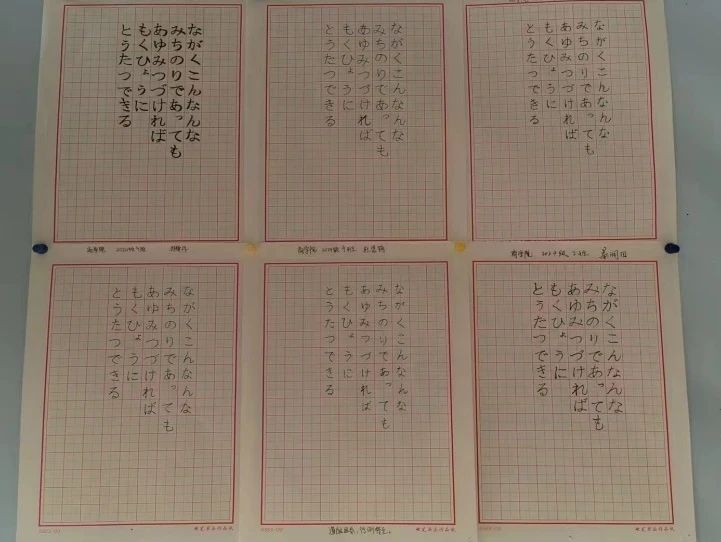 ながくこんなんな
みちのりであっても
あゆみつづければ
もくひょうに
とうたつできる
ながくこんなんな
みちのりであっても
あゆみつづければ
もくひょうに
とうたつできる
ながくこんなんな
みちのりであっても
あゆみつづければ
もくひょうに
とうたつできる
商学院
商学院
ながくこんなんな
みちのりであっても
あゆみつづければ
もくひょうに
とうたつできる
ながくこんなんな
みちのりであっても
あゆみつづければ
もくひょうに
とうたつできる
ながくこんなんな
みちのりであっても
あゆみつづければ
もくひょうに
とうたつできる
硬笔书法作品纸
硬笔书法作品纸
硬笔书法作品纸